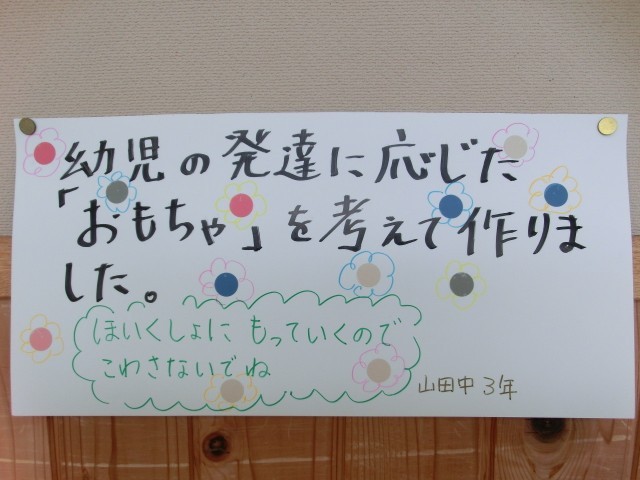 幼児の発達に応じた
「おもちゃ」を考えて作りま
した。
ほいくしょに もっていくので
こわさないでね
山田中 3年